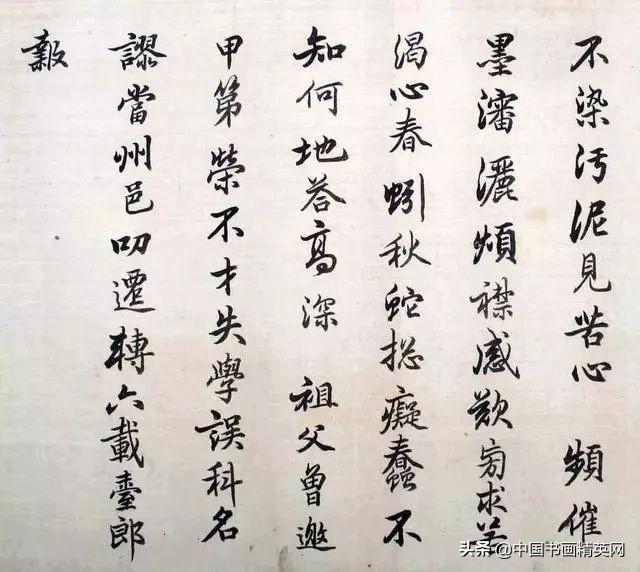 不染汚泥見苦心 頻催
墨瀋灑煩襟感歎旁求若
渴心春蚓秋蛇摠癡蠢不
知何地荅高深 祖父曾邀
甲第榮不才失學誤科名
謬當州邑叨遷轉六載臺郎
報
头条 @中国书画精英网